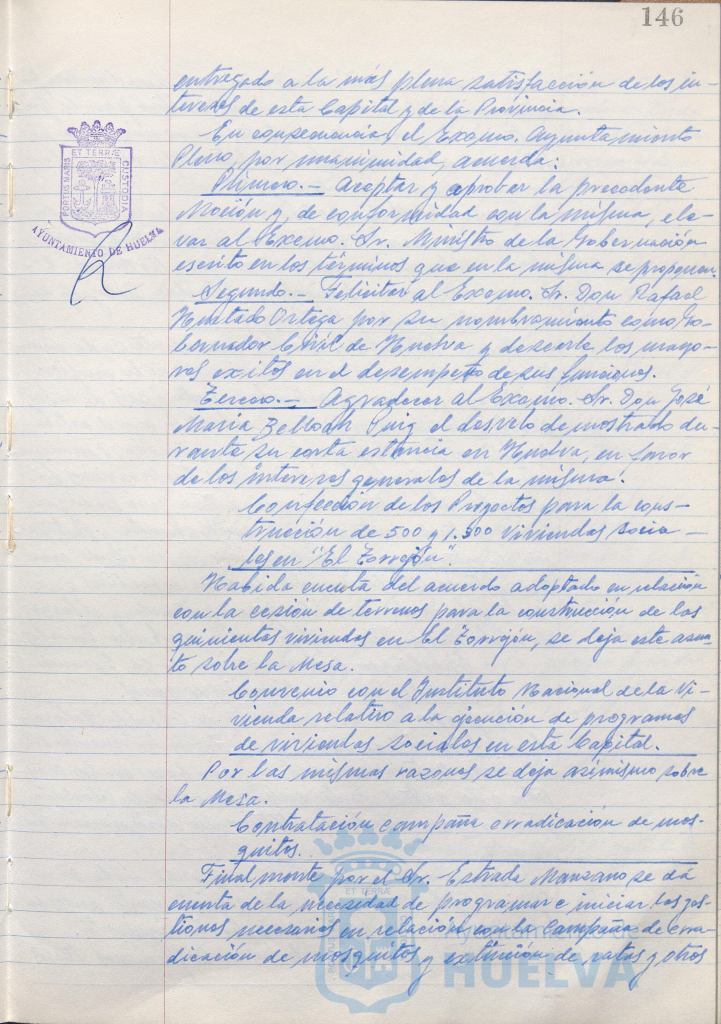 146
entregado a la más plena satisfacción de los in-
tereses de esta Capital y de la Provincia.
En consecuencia, el Excmo. Ayuntamiento
Pleno, por unanimidad, acuerda:
Primero.- Aceptar y aprobar la precedente
Moción y, de conformidad con la misma, ele-
var al Excmo. Sr. Ministro de la Gobernación
escrito en los términos que en la misma se proponen.
Segundo.- Felicitar al Excmo. Sr. Don Rafael
Hurtado Ortega por su nombramiento como Go-
bernador Civil de Huelva y desearle los mayo-
res exitos en el desempeño de sus funciones.
Tercero.- Agradecer al Excmo. Sr. Don José
María Belloch Puig el desvelo demostrado du-
rante su corta estancia en Huelva, en favor
de los intereses generales de la misma.
Confección de los Proyectos para la cons-
trucción de 500 y 1.500 Viviendas Socia-
les en "El Torrejón".
Habida cuenta del acuerdo adoptado en relación
con la cesión de terrenos para la construcción de las
quinientas viviendas en El Torrejón, se deja este asun-
to sobre la Mesa.
Convenio con el Instituto Nacional de la Vi-
vienda relativo a la ejecución de programas
de viviendas sociales en esta Capital.
Por las mismas razones se deja asimismo sobre
la Mesa.
Contratación campaña erradicación de mos-
quitos.
Finalmente por el Sr. Estrada Manzano se dá
cuenta de la necesidad de programar e iniciar las ges-
tiones necesarias en relación con la Campaña de erra-
dicación de mosquitos y extinción de ratas y otros
PORTUS MARIS ET TERRÆ CUSTODIA
AYUNTAMIENTO DE HUELVA
ET TERRÆ
HUELVA